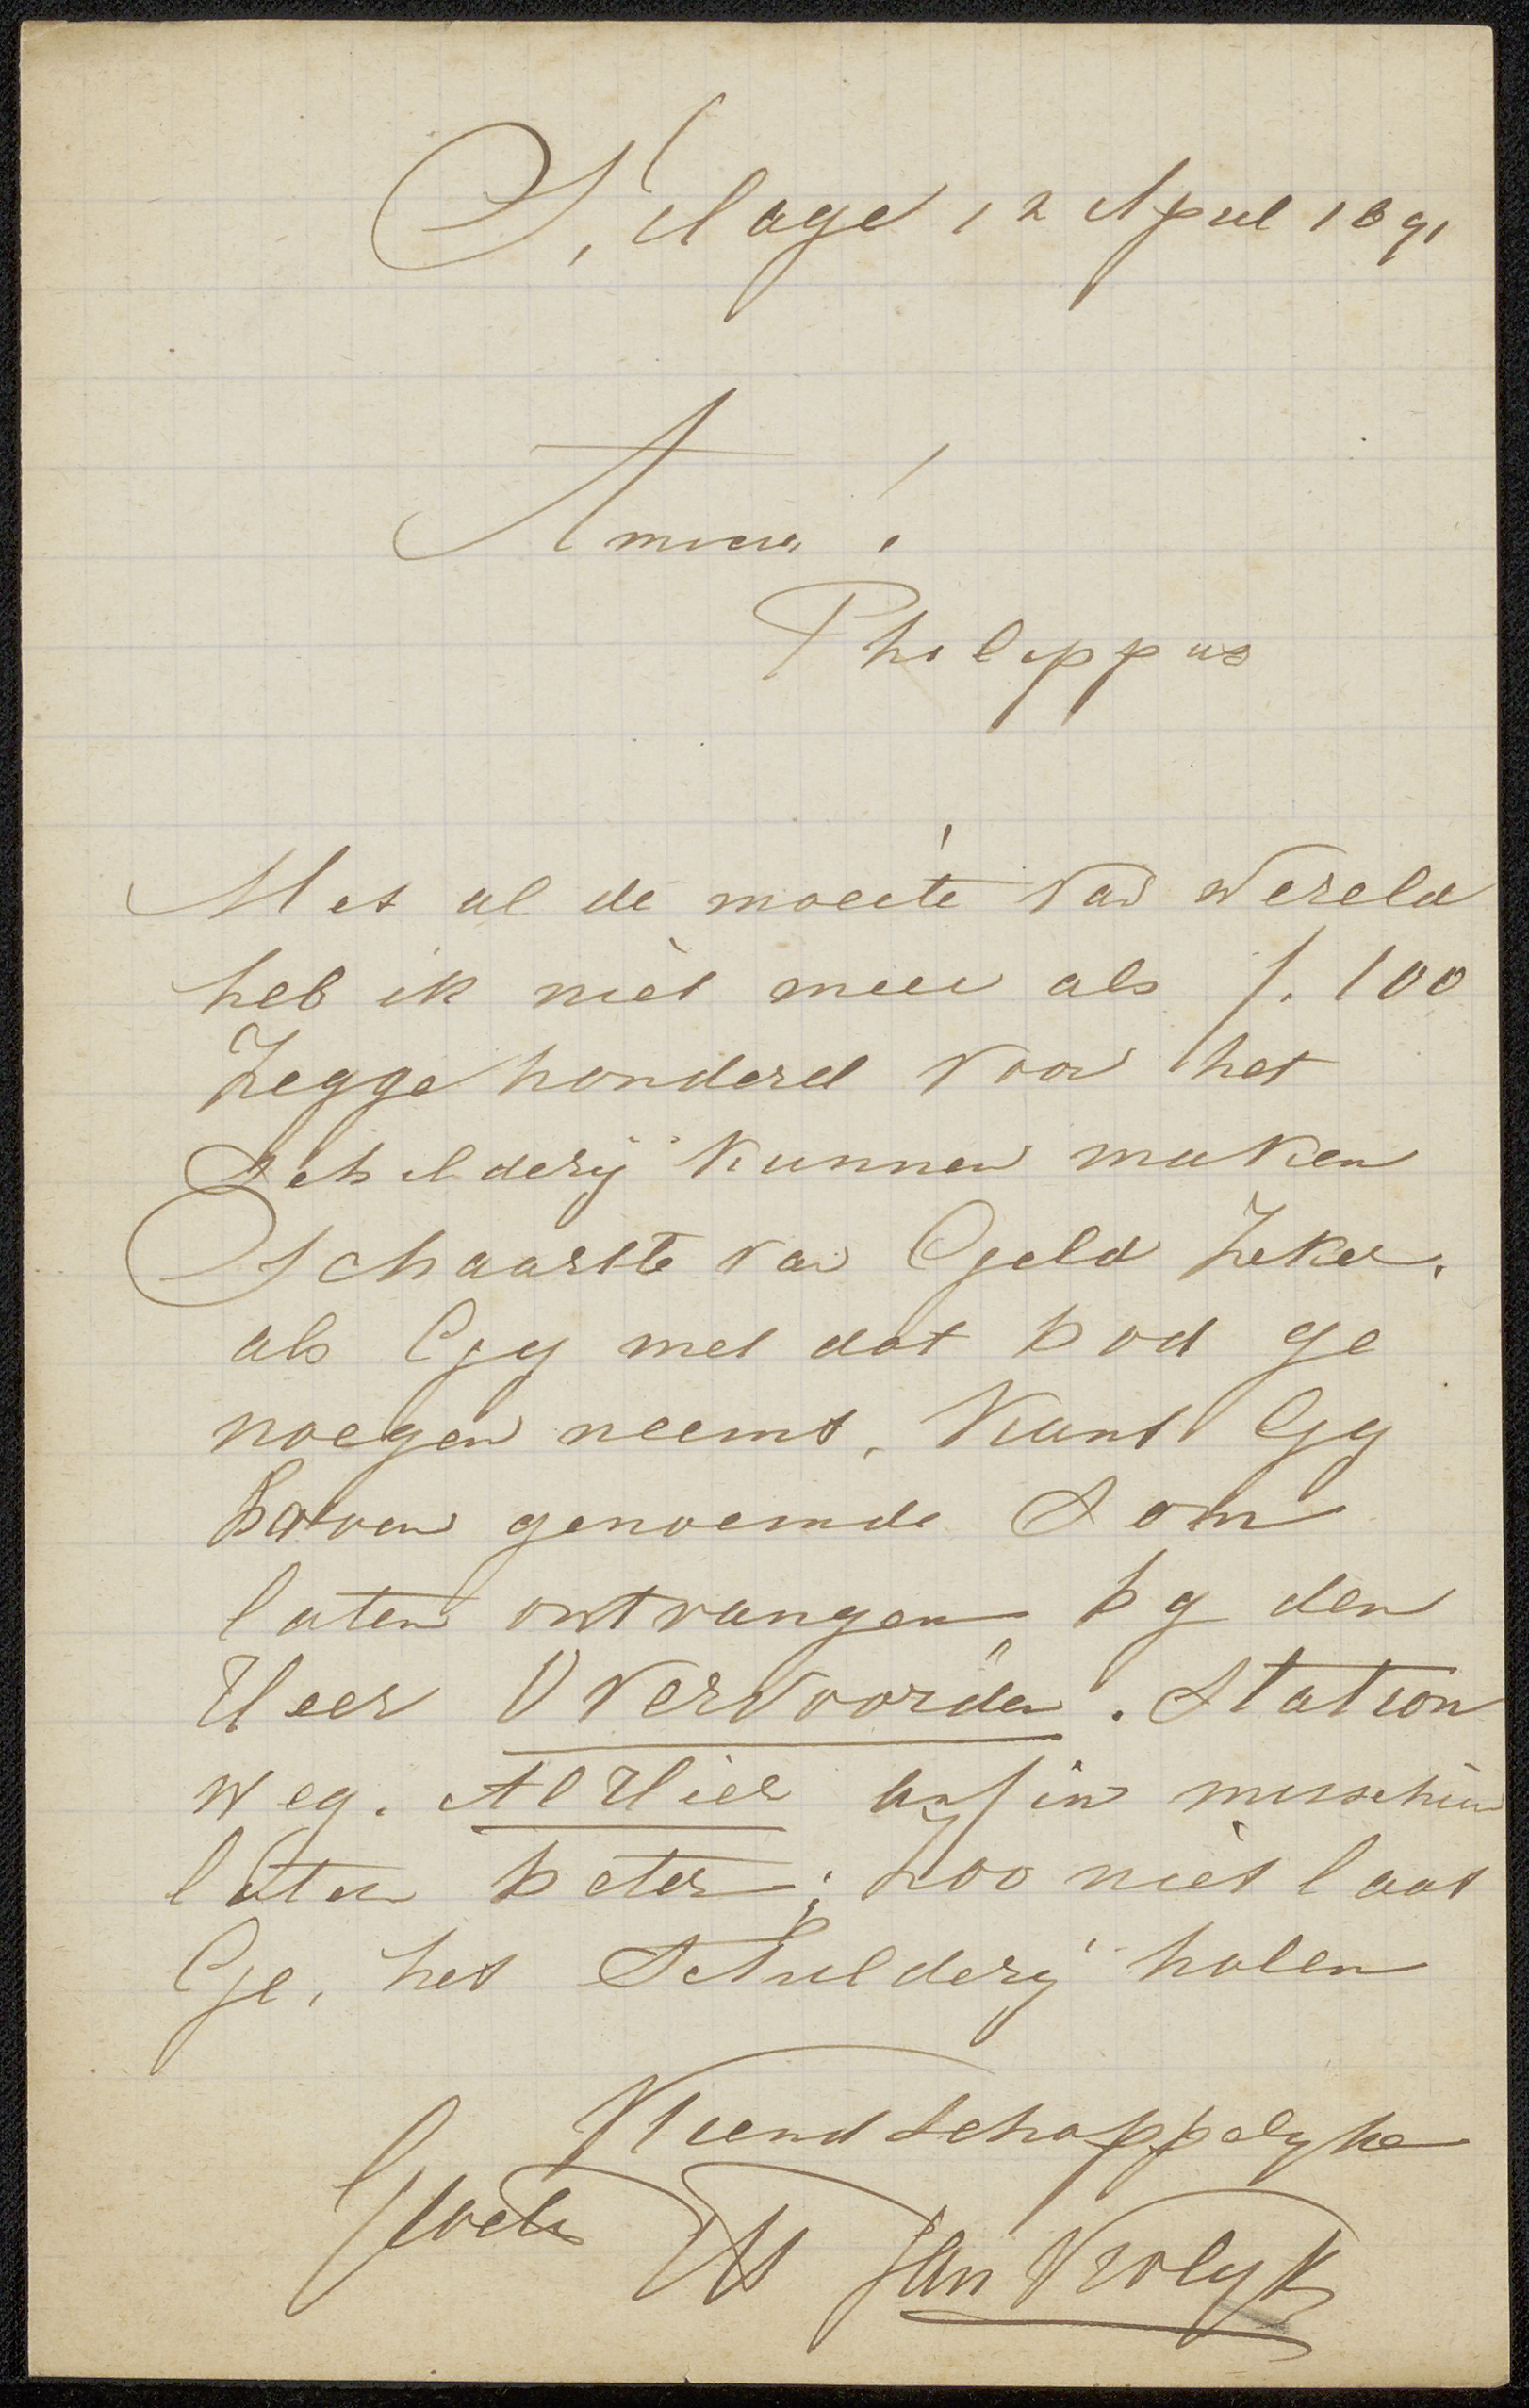 S, Hage 12 April 1891
Amice !
Philippus
Met al de moeite van wereld
heb ik niet meer als f. 100
Zegge honderd voor het
Schilderij kunnen maken
Schaarste van Geld Zeker.
als Gy met dat bod ge
noegen neemt, kunt Gy
boven genoemde Som
laten ontvangen by den
Heer Vervoorden. Station
weg. Al Hier enfin misschien
later beter; zoo niet laat
Ge, het Schilderij halen
Vriendschappelyke
Groete Uw Jan Vrolyk